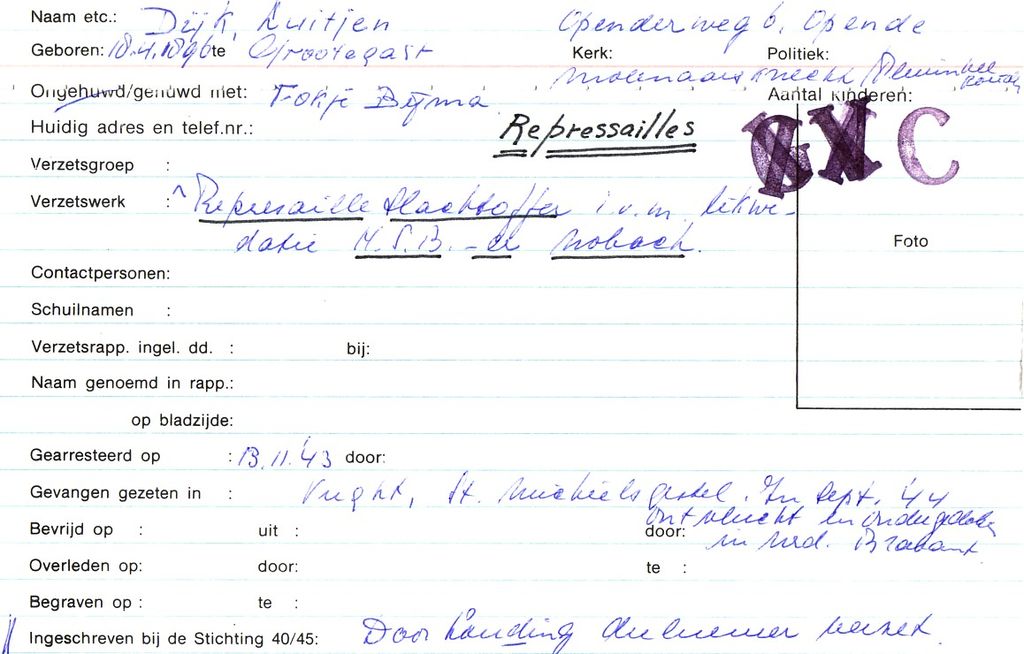 Naam etc.: Dijk, Luitjen Openderweg 6, Opende
Geboren: 18.4.1896 te Grootegast Kerk: Politiek:
molenaarsknecht /
Ongehuwd/gehuwd met: Fokje Bijma Aantal kinderen:
Huidig adres en telef.nr.: Repressailles C
Verzetsgroep :
Verzetswerk : Represaille slachtoffer i.v.m. likwi-
datie N.S.B.-er Mobach.
Foto
Contactpersonen:
Schuilnamen :
Verzetsrapp. ingel. dd. : bij:
Naam genoemd in rapp.:
op bladzijde:
Gearresteerd op : 13.11.'43 door:
Gevangen gezeten in : Vught, St. Michielsgestel. In Sept. '44
ontvlucht en ondergedoken
Bevrijd op : uit : door: in Nrd. Brabant
Overleden op: door: te :
Begraven op : te :
Ingeschreven bij de Stichting 40/45: Door houding deelnemer verzet